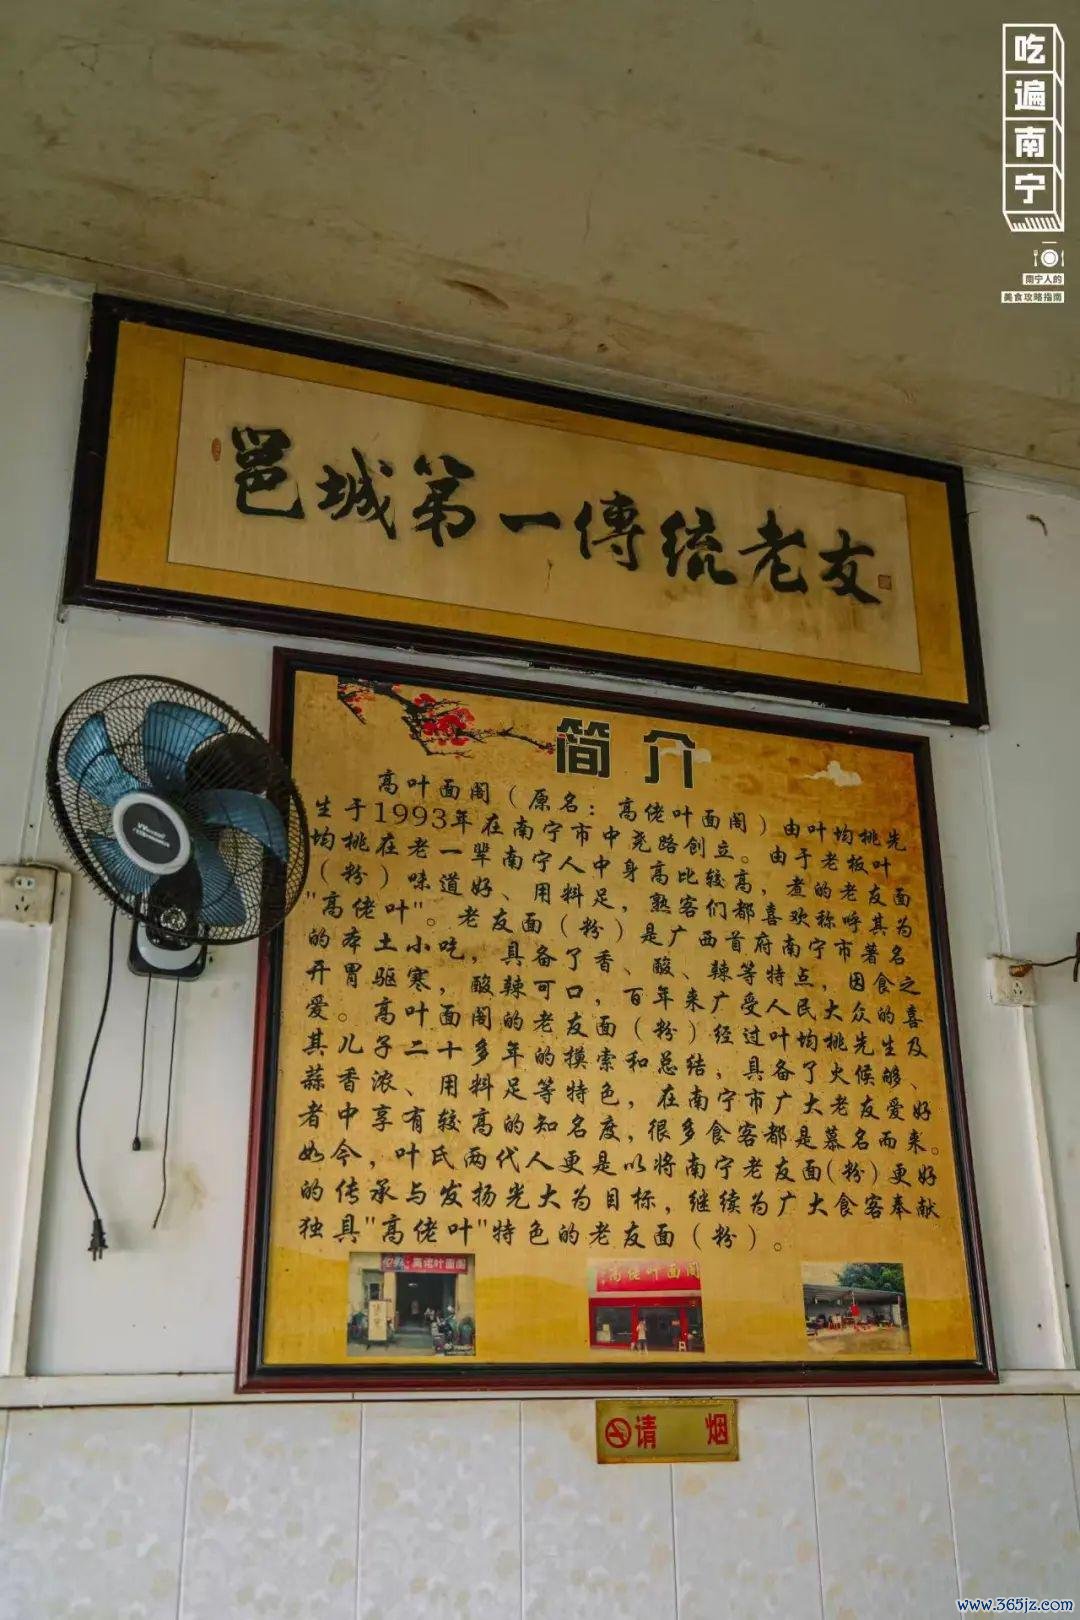 吃遍南宁
南宁人的
美食攻略指南
邕城第一傳統老友
简介
高叶面阁（原名：高佬叶面阁）由叶均桃先
生于1993年在南宁市中尧路创立。由于老板叶
均桃在老一辈南宁人中身高比较高，煮的老友面
（粉）味道好、用料足，熟客们都喜欢称呼其为
"高佬叶"。老友面（粉）是广西首府南宁市著名
的本土小吃，具备了香、酸、辣等特点，因食之
开胃驱寒，酸辣可口，百年来广受人民大众的喜
爱。高叶面阁的老友面（粉）经过叶均桃先生及
其儿子二十多年的摸索和总结，具备了火候够、
蒜香浓、用料足等特色，在南宁市广大老友爱好
者中享有较高的知名度，很多食客都是慕名而来。
如今，叶氏两代人更是以将南宁老友面(粉)更好
的传承与发扬光大为目标，继续为广大食客奉献
独具"高佬叶"特色的老友面（粉）。
高佬叶面阁
高佬叶面阁
请 烟
www.365jz.com